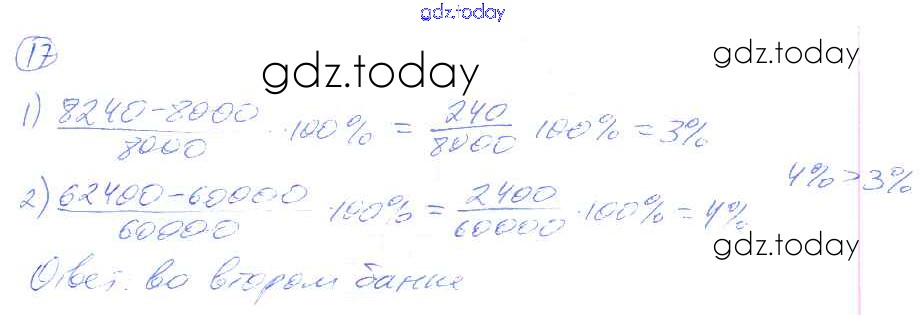 gdz.today
17
gdz.today
gdz.today
1) 8240-8000/8000 · 100% = 240/8000 100% = 3%
2) 62400-60000/60000 · 100% = 2400/60000 · 100% = 4%
4% > 3%
gdz.today
Ответ: во втором банке